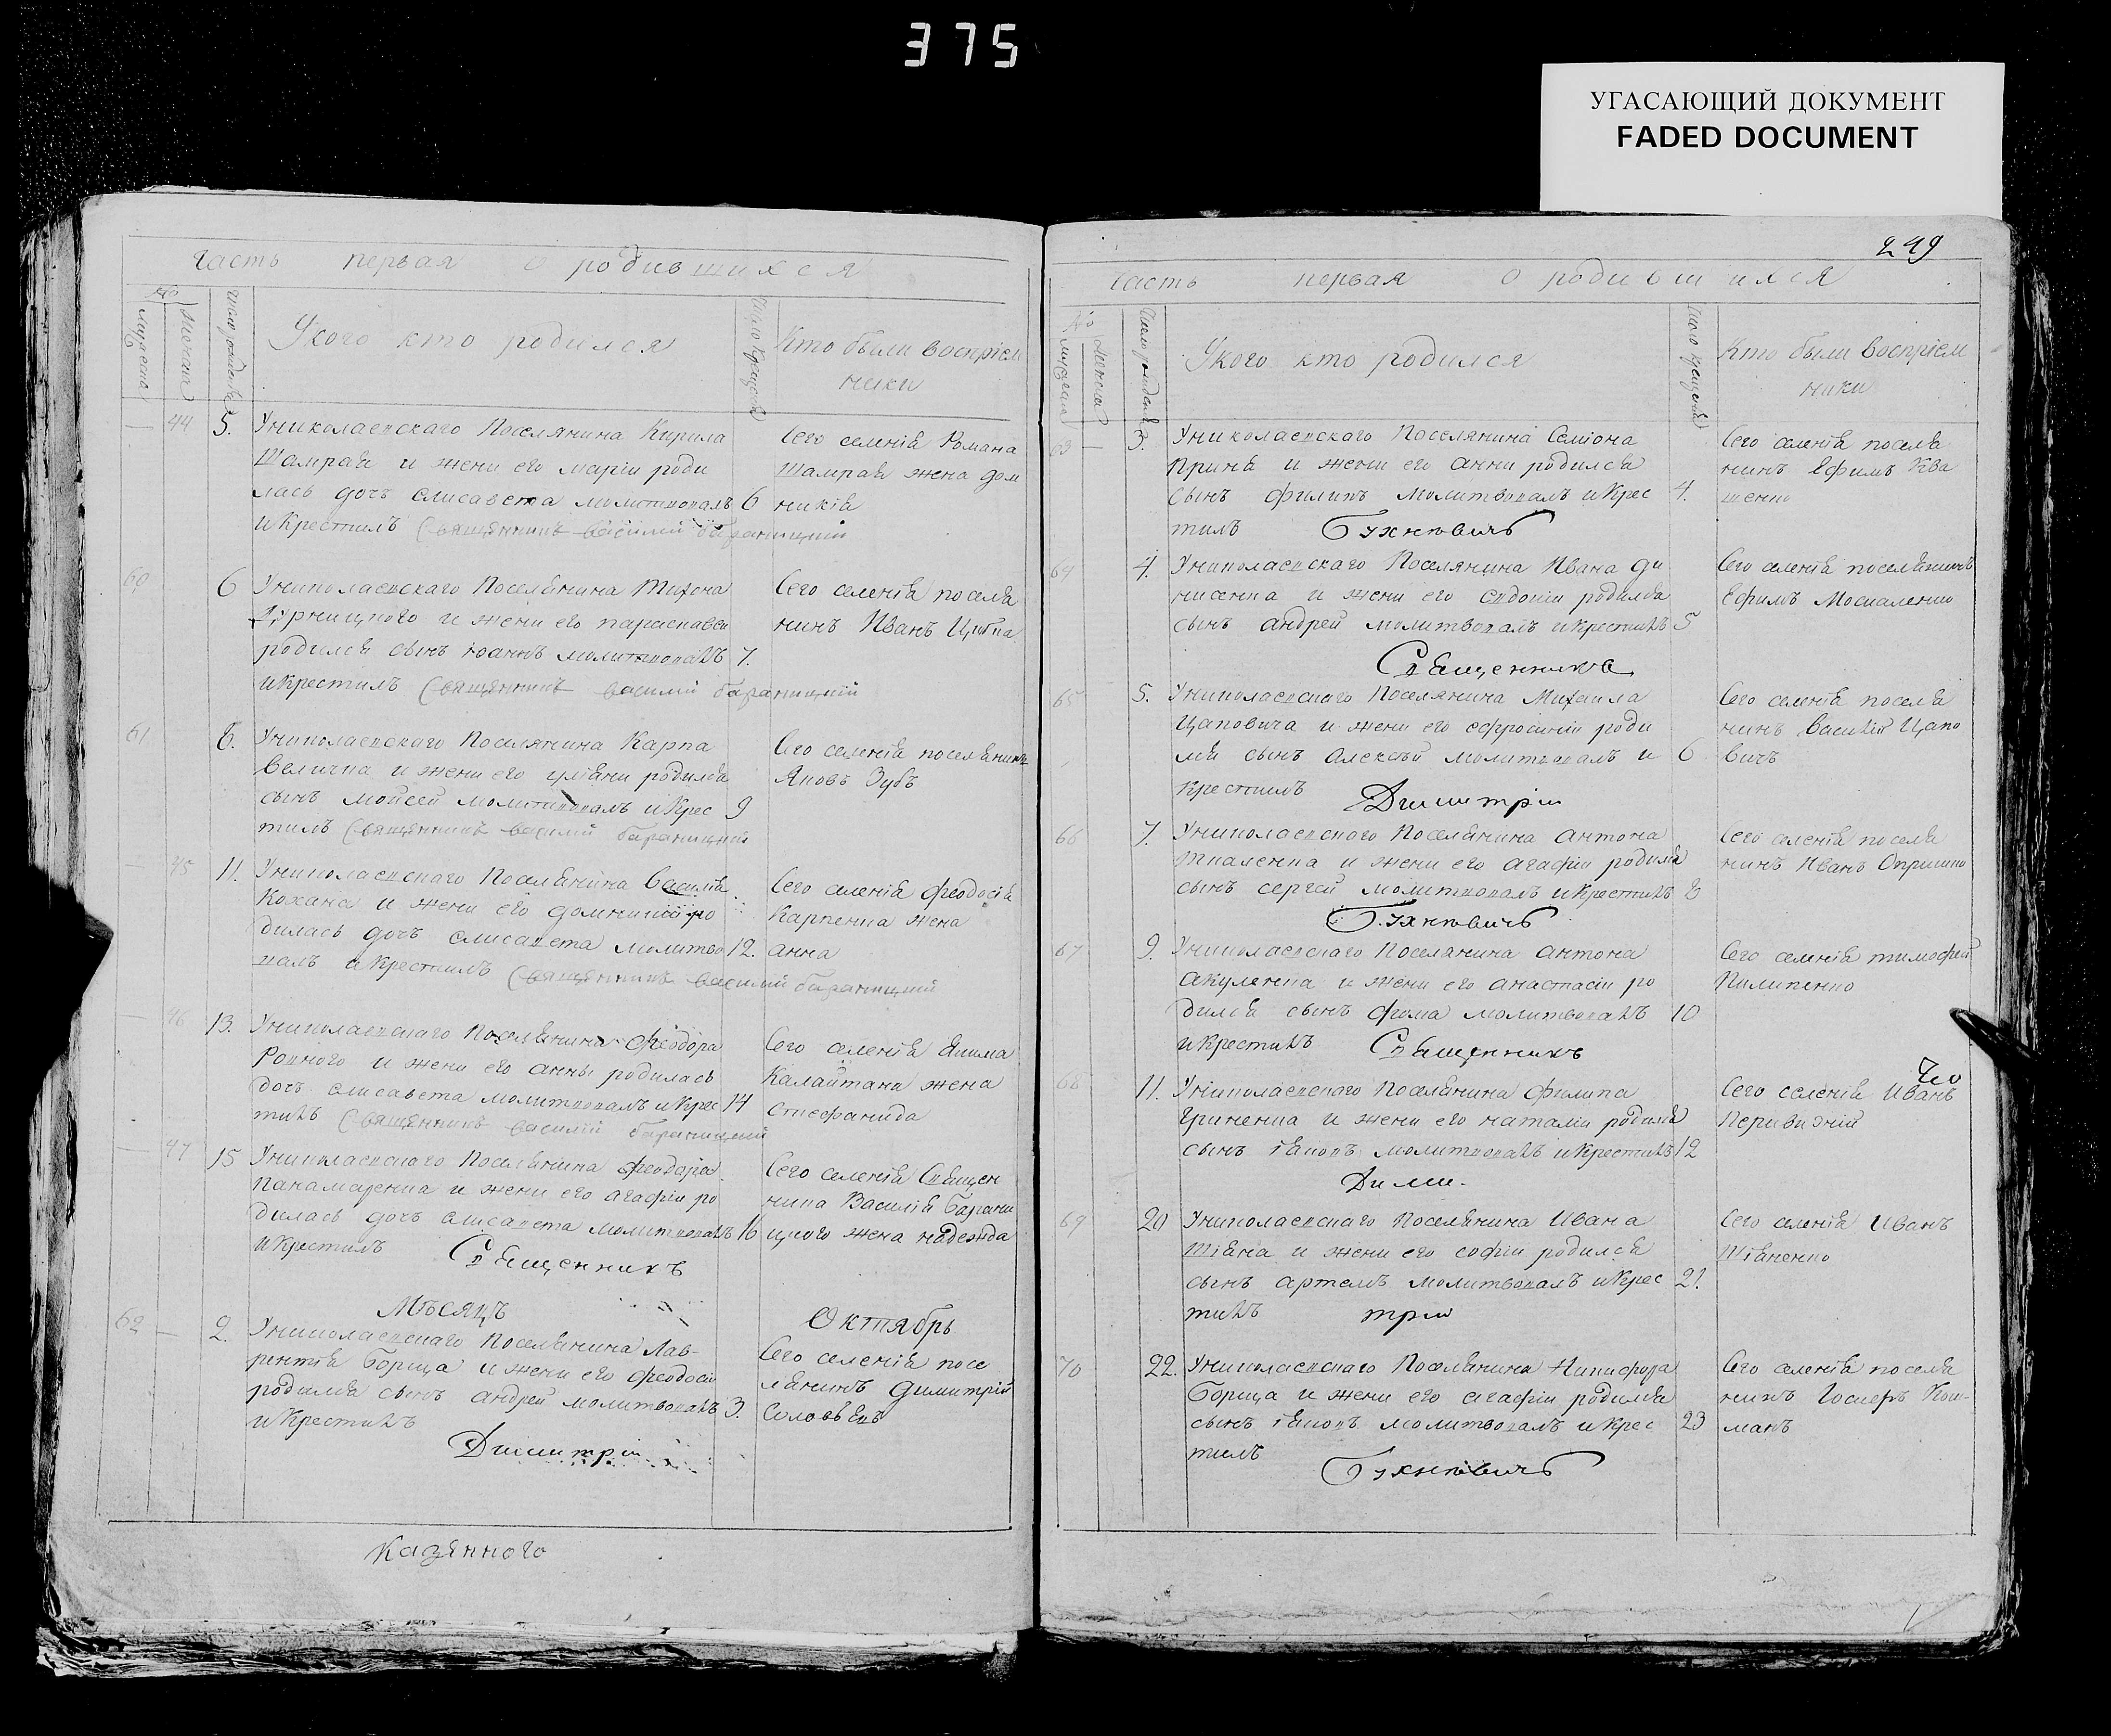 375
УГАСАЮЩИЙ ДОКУМЕНТ
FADED DOCUMENT
часть первая о родившихся
№
мужеска
женска
число рождения
Укого кто родился
число крещения
Кто были восприем
ники
— 44 5. Униколаевскаго Поселянина Кирила
Шамрая и жени его марiи роди
лась дочь елисавета молитвовалъ 6
и Крестилъ Священникъ василий бараницкий
Сего селенiя Романа
Шамрая жена дом
никiя
60 6 Униколаевскаго Поселянина Тихона
и жени его параскавеи
родился сынъ iоаннъ молитвовалъ 7.
и крестилъ Священникъ василий бараницкий
Сего селенiя поселя
нинъ Иванъ
61 6. Униколаевскаго Поселянина Карпа
Величка и жени его улiяни родился
сынъ мойсей молитвовалъ и Крес 9
тилъ Священникъ василий бараницкий
Сего селенiя поселянинъ
Яковъ Зубъ
— 45 11. Униколаевскаго Поселянина Василiя
Кохана и жени его домникiи ро
дилась дочь елисавета молитво 12.
валъ и Крестилъ Священникъ василий бараницкий
Сего селенiя феодосiя
Карпенка жена
анна
— 46 13. Униколаевскаго Поселянина Феодора
Ровного и жени его анны родилась
дочь елисавета молитвовалъ и Крес 14
тилъ Священникъ василий бараницкий
Сего селенiя якима
Калайтана жена
стесфанида
— 47 15 Униколаевскаго Поселянина феодора
Панамаренка и жени его агафiи ро
дилась дочь елисавета молитвовалъ 16
и Крестилъ Священникъ
Сего селенiя Священ
ника Василiя Барани
цкого жена надежда
Мѣсяцъ Октябрь
62 — 2. Униколаевскаго Поселянина Лав-
рентiя Борща и жени его феодосiи
родился сынъ андрей молитвовалъ 3.
и Крестилъ
Димитрiй
Сего селенiя посе
лянинъ Димитрiй
Соловьевъ
Казенного
249
часть первая о родившихся
№
мужеска
женска
число рожденiя
Укого кто родился
число крещенiя
Кто были восприем
ники
63 — 3. Униколаевскаго Поселянина Семiона
и жени его анни родился
сынъ филипъ молитвовалъ и Крес 4.
тилъ Бухневичъ
Сего селенiя поселя
нинъ Ефимъ Ква
шенко
64 4. Униколаевскаго Поселянина Ивана Де
нисенка и жени его Евдокiи родился
сынъ андрей молитвовалъ и Крестилъ 5
Священникъ
Сего селенiя поселянинъ
Ефимъ Москаленко
65 5. Униколаевскаго Поселянина Михаила
Цаповича и жени его ефросинiи роди
лся сынъ алексѣй молитвовалъ и 6
крестилъ
Димитрiй
Сего селенiя поселя
нинъ Василiй Цапо
вичъ
66 7. Униколаевскаго Поселянина антона
Ткаленка и жени его агафiи родился
сынъ сергей молитвовалъ и Крестилъ 8
Бухневичъ
Сего селенiя поселя
нинъ Иванъ Опришко
67 9. Униколаевскаго Поселянина антона
акуленка и жени его анастасiи ро
дился сынъ фома молитвовалъ 10
и Крестилъ Священникъ
Сего селенiя тимофей
Пилипенко
68 11. Униколаевскаго Поселянина филипа
Гриненка и жени его наталiи родился
сынъ iяковъ молитвовалъ и Крестилъ 12
Дими.
Сего селенiя Иванъ
69 20 Униколаевскаго Поселянина Ивана
Шiяна и жени его софiи родился
сынъ артемъ молитвовалъ и Крес 21.
тилъ трiй
Сего селенiя Иванъ
Шiяненко
70 22. Униколаевскаго Поселянина Никифора
Борща и жени его агафiи родился
сынъ iяковъ молитвовалъ и Крес 23
тилъ
Бухневичъ
Сего селенiя поселя
нинъ Iосифъ Кош-
манъ